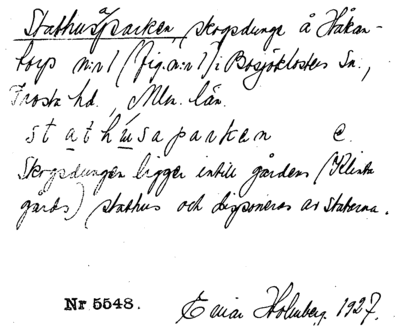 Stathusaparken, skogsdunge å Håkan-
torp n:r 1 (fig. n:r 1) i Bosjöklosters Sn.,
Frosta hd., Mlm. län.
stathusaparken c.
Skogsdungen ligger intill gårdens (Klinta
gårds) stathus och disponeras av statarna.
Nr 5548. Einar Holmberg. 1927.